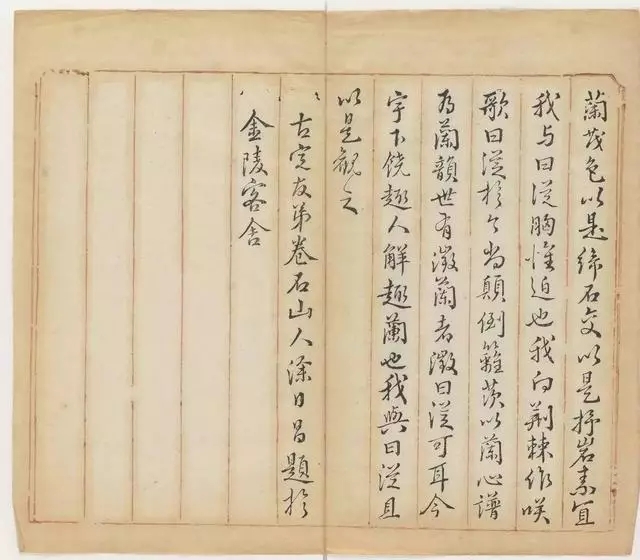 蘭茂色以是締石交以是抒岩素宜
我与曰從胸迫也我向荆棘作咲
歌曰從於尚顛倒籬茨以蘭心譜
為蘭韻世有徵蘭者徵曰從可耳今
宇下饒趣人解趣蘭也我與曰從且
以是觀之
古完友弟卷石山人涂日昌題於
金陵客舍